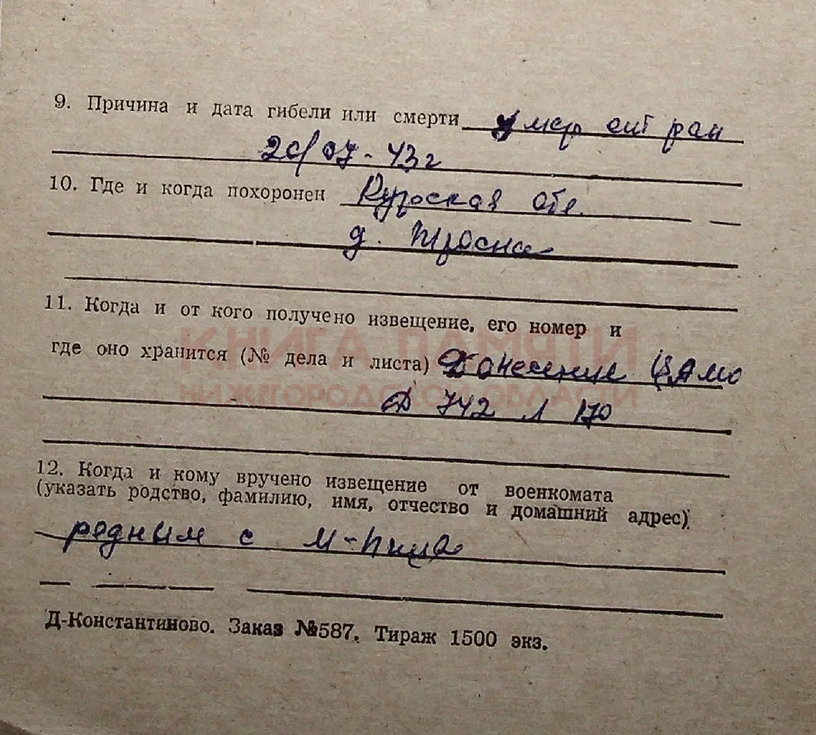 9. Причина и дата гибели или смерти умер от ран
20/07-43г
10. Где и когда похоронен Курская обл.
д. Тросна
11. Когда и от кого получено извещение, его номер и
КНИГА ПАМЯТИ
где оно хранится (№ дела и листа) Донесение ЦАМО
НИЖЕГОРОДСКОЙ ОБЛАСТИ
Д 742 Л 170
12. Когда и кому вручено извещение от военкомата
(указать родство, фамилию, имя, отчество и домашний адрес)
родным с
Д-Константиново. Заказ №587. Тираж 1500 экз.